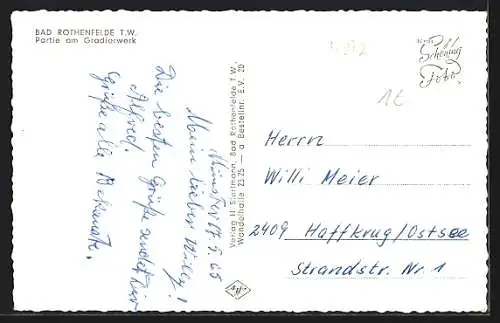 BAD ROTHENFELDE T.W.
Partie am Gradierwerk
Münster 17.5.65
Mein lieber Willy!
Die besten Grüße sendet Dir
Alfred.
Grüße alle Bekannte.
Verlag H. Startmann, Bad Rothenfelde T.W.
Wandelhalle 2375 — a Bestellnr. E.V. 20
Schöning
Foto
1€
Herrn
Willi Meier
2409 Haffkrug/Ostsee
Strandstr. Nr. 1